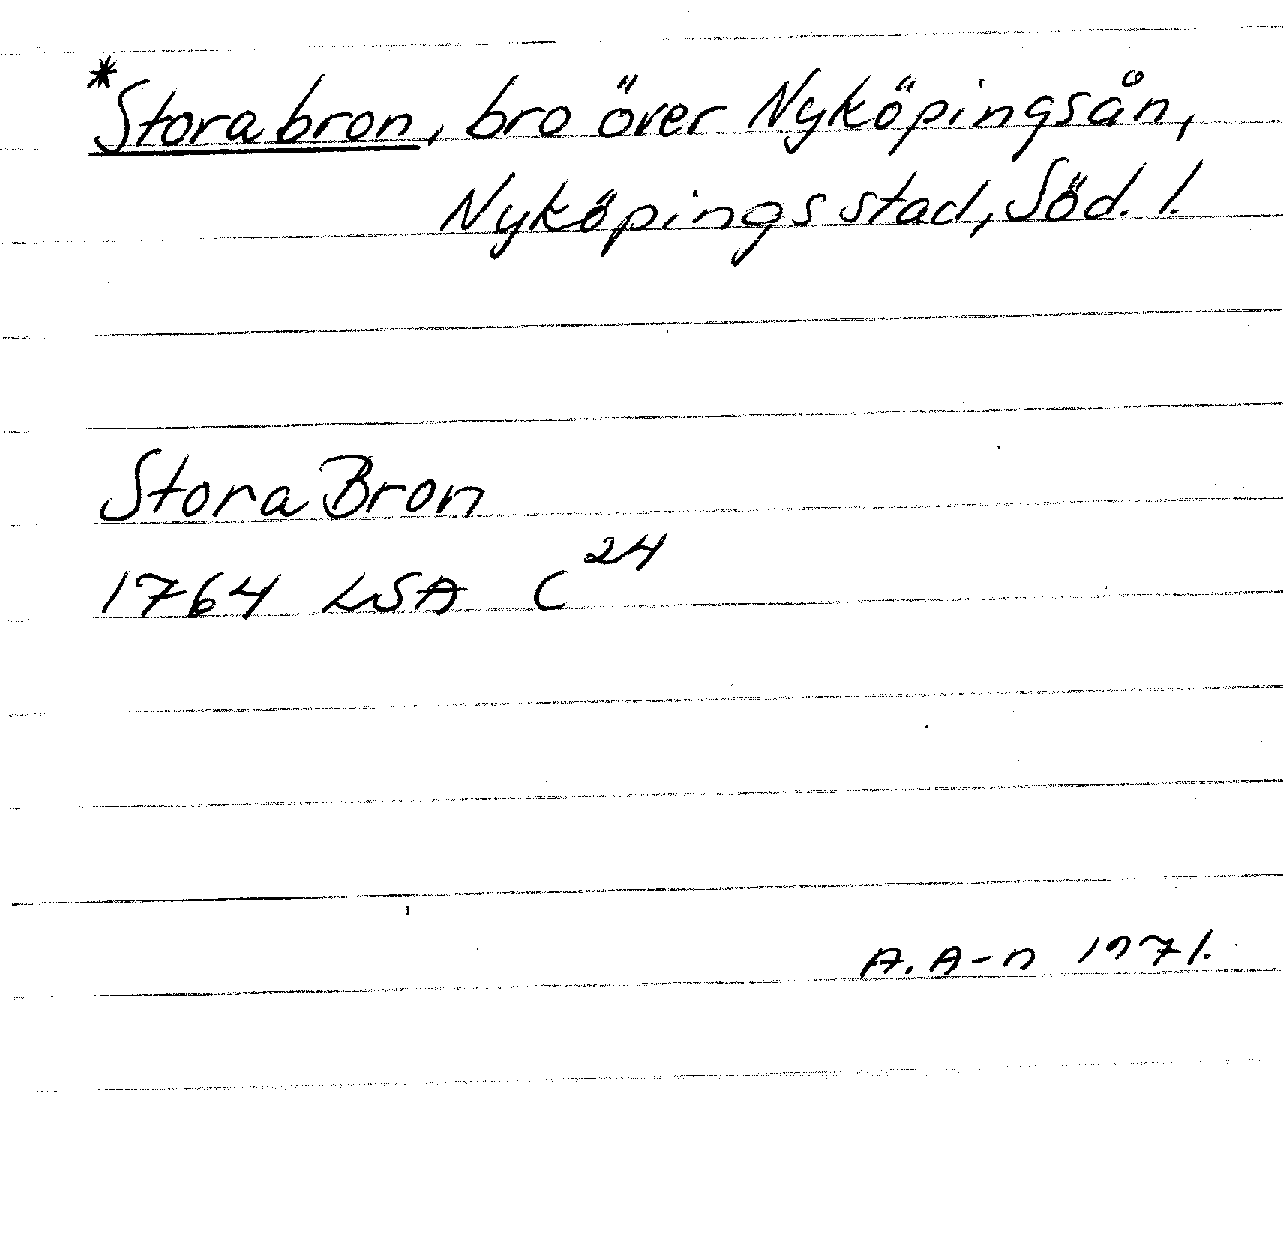 *Stora bron, bro över Nyköpingsån,
Nyköpings stad, Söd. l.
Stora Bron
1764 LSA C²⁴
A. A-n 1971.